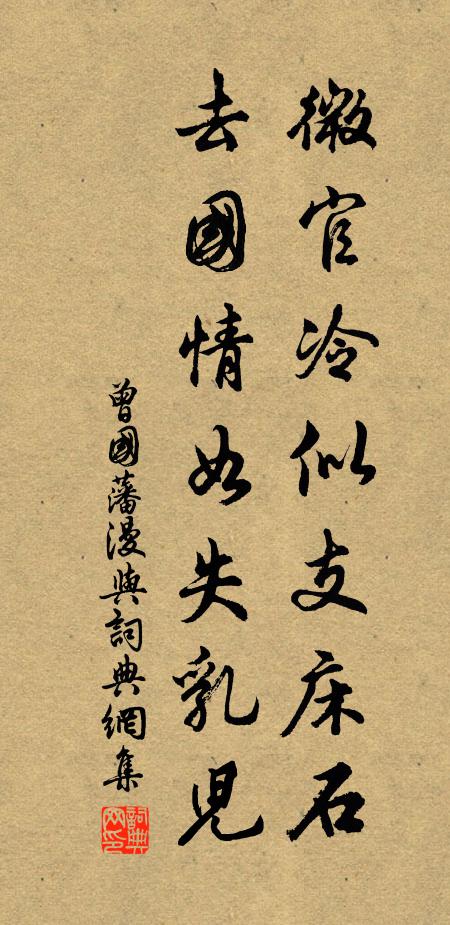 微官冷似支床石
去國情如失乳兒
曾國藩漫與詞典網集
詞典網印